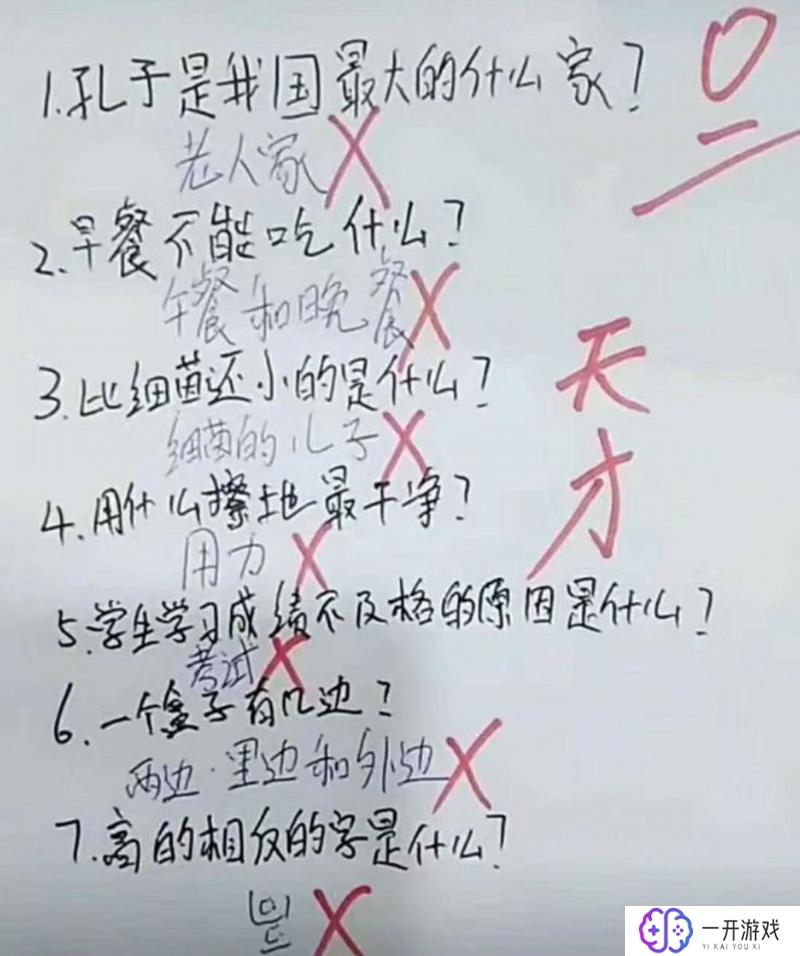 1.孔子是我国最大的什么家?
老人家
2.早餐不能吃什么?
午餐和晚餐
3.比细菌还小的是什么?
细菌的儿子
4.用什么擦地最干净?
用力
5.学生学习成绩不及格的原因是什么?
考试
6.一个盒子有几边?
两边.里边和外边
7.高的相反的字是什么?
0
天才
一开游戏
YI KAI YOU XI